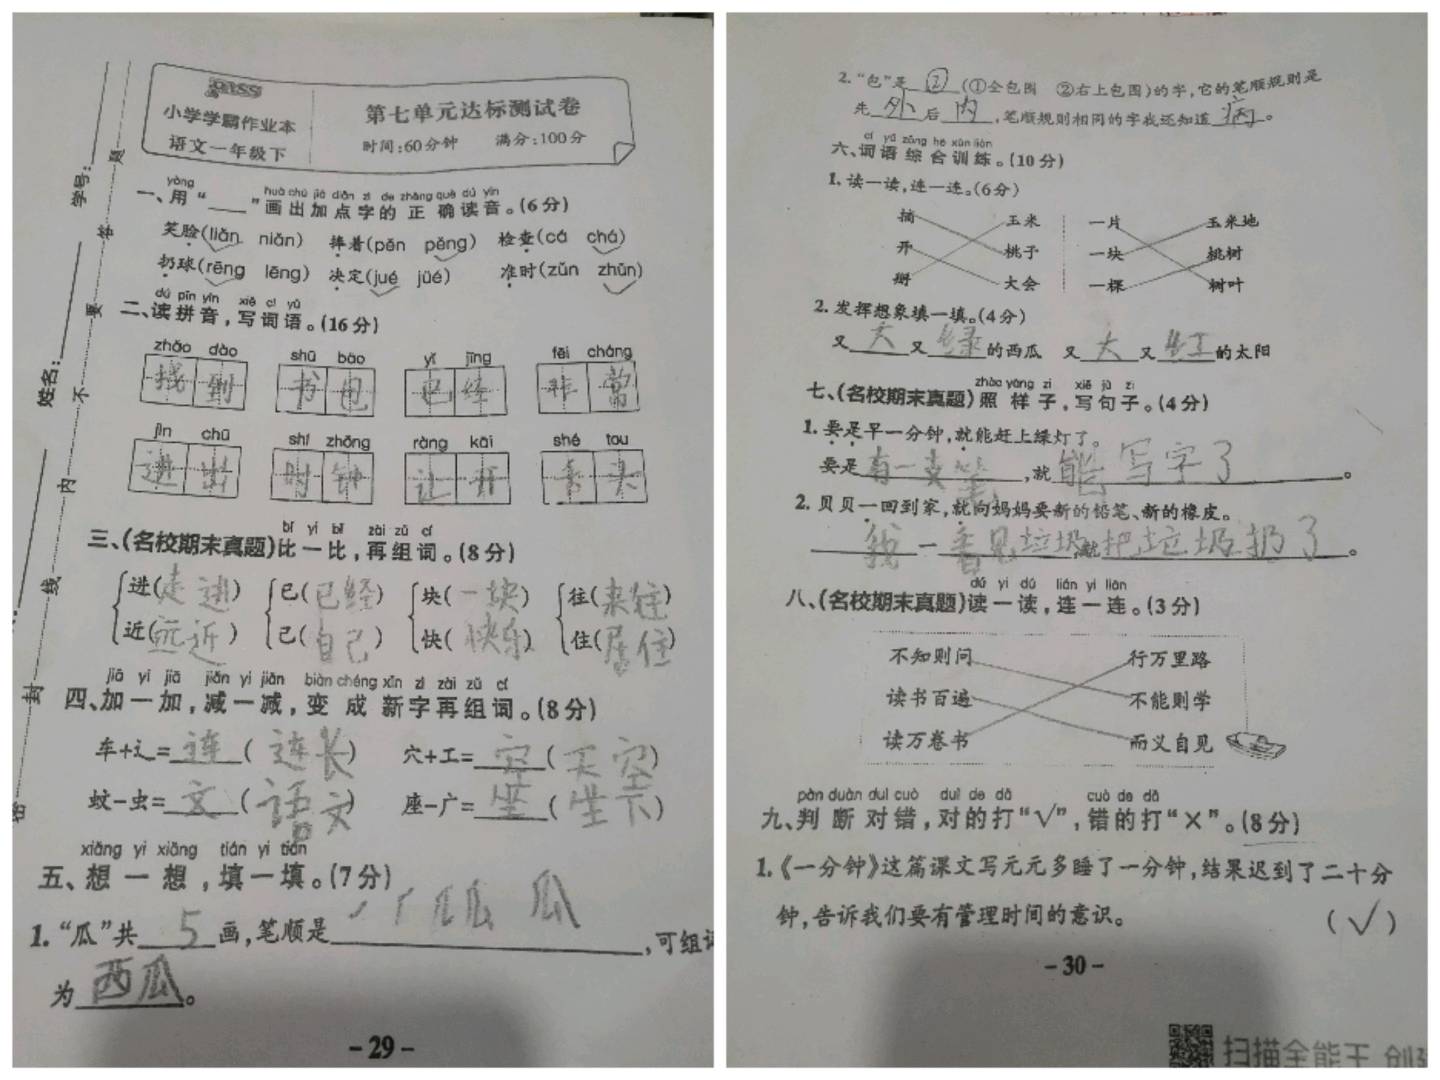 PASS
小学学霸作业本
语文一年级下
第七单元达标测试卷
时间:60分钟 满分:100分
学号:
姓名:
密 封 线 内 不 要 答 题
yòng huà chū jiā diǎn zì de zhèng què dú yīn
一、用“____”画出加点字的正确读音。(6分)
笑脸(liǎn niǎn) 捧着(pěn pěng) 检查(cá chá)
扔球(rēng lēng) 决定(jué jüé) 准时(zǔn zhǔn)
dú pīn yīn xiě cí yǔ
二、读拼音,写词语。(16分)
zhǎo dào shū bāo yǐ jīng fēi cháng
找到 书包 已经 非常
jìn chū shí zhōng ràng kāi shé tou
进出 时钟 让开 舌头
bǐ yi bǐ zài zǔ cí
三、(名校期末真题)比一比,再组词。(8分)
进(走进) 已(已经) 块(一块) 往(来往)
近(远近) 己(自己) 快(快乐) 住(居住)
jiā yi jiā jiǎn yi jiǎn biàn chéng xīn zì zài zǔ cí
四、加一加,减一减,变成新字再组词。(8分)
车+辶=连(连长) 穴+工=空(天空)
蚊-虫=文(语文) 座-广=坐(坐下)
xiǎng yi xiǎng tián yi tián
五、想一想,填一填。(7分)
1.“瓜”共5画,笔顺是 瓜,可组词
为西瓜。
-29-
2.“包”是②(①全包围 ②右上包围)的字,它的笔顺规则是
先外后内,笔顺规则相同的字我还知道病。
cí yǔ zōng hé xùn liàn
六、词语综合训练。(10分)
1.读一读,连一连。(6分)
摘 玉米 一片 玉米地
开 桃子 一块 桃树
掰 大会 一棵 树叶
2.发挥想象填一填。(4分)
又大又绿的西瓜 又大又红的太阳
zhào yàng zi xiě jù zi
七、(名校期末真题)照样子,写句子。(4分)
1.要是早一分钟,就能赶上绿灯了。
要是有一支笔,就能写字了。
2.贝贝一回到家,就向妈妈要新的铅笔、新的橡皮。
我一看见垃圾,就把垃圾扔了。
dú yi dú lián yi lián
八、(名校期末真题)读一读,连一连。(3分)
不知则问 行万里路
读书百遍 不能则学
读万卷书 而义自见
pàn duàn duì cuò duì de dǎ cuò de dǎ
九、判断对错,对的打“√”,错的打“×”。(8分)
1.《一分钟》这篇课文写元元多睡了一分钟,结果迟到了二十分
钟,告诉我们要有管理时间的意识。 (√)
-30-
扫描全能王 创建